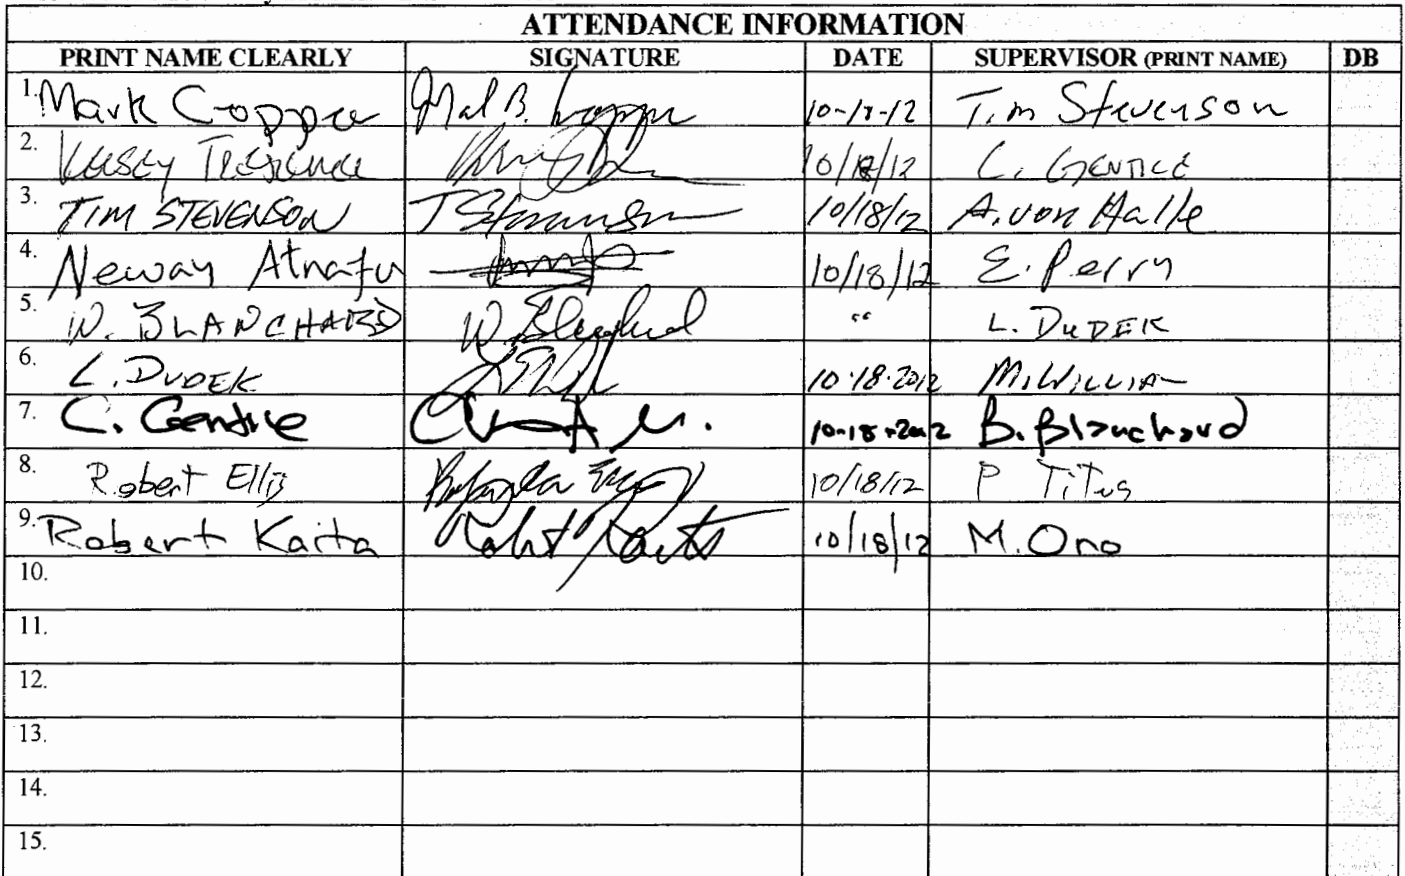 ATTENDANCE INFORMATION
PRINT NAME CLEARLY SIGNATURE DATE SUPERVISOR (PRINT NAME) DB
1. Mark Cropper Mark B. Cropper 10-18-12 Tim Stevenson
2. Kelsey Tresemer 10/18/12 C. GENTILE
3. TIM STEVENSON T Stevenson 10/18/12 A. von Halle
4. Neway Atnafu 10/18/12 E. Perry
5. W. BLANCHARD W. Blanchard " L. DUDEK
6. L. DUDEK 10.18.2012 M. WILLIAMS
7. C. Gentile 10-18-2012 B. Blanchard
8. Robert Ellis 10/18/12 P Titus
9. Robert Kaita Robert Kaita 10/18/12 M. Ono
10.
11.
12.
13.
14.
15.